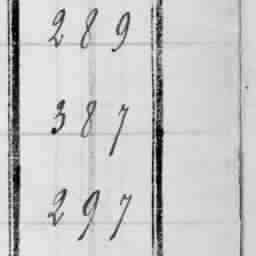 289
387
297